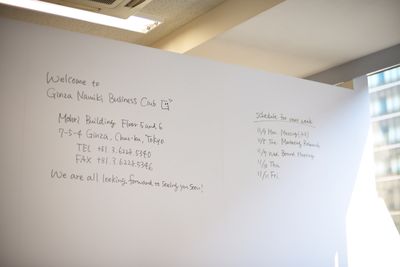 Welcome to
Ginza Namiki Business Club
Motoi Building Floor 5 and 6
7-5-4 Ginza, Chuo-ku, Tokyo
TEL +81.3.6224.5340
FAX +81.3.6224.5346
We are all looking forward to seeing you soon!
Schedule for next week
11/7 Mon Meeting
11/8 Tue Marketing Research
11/9 Wed Board Meeting
11/10 Thu
11/11 Fri